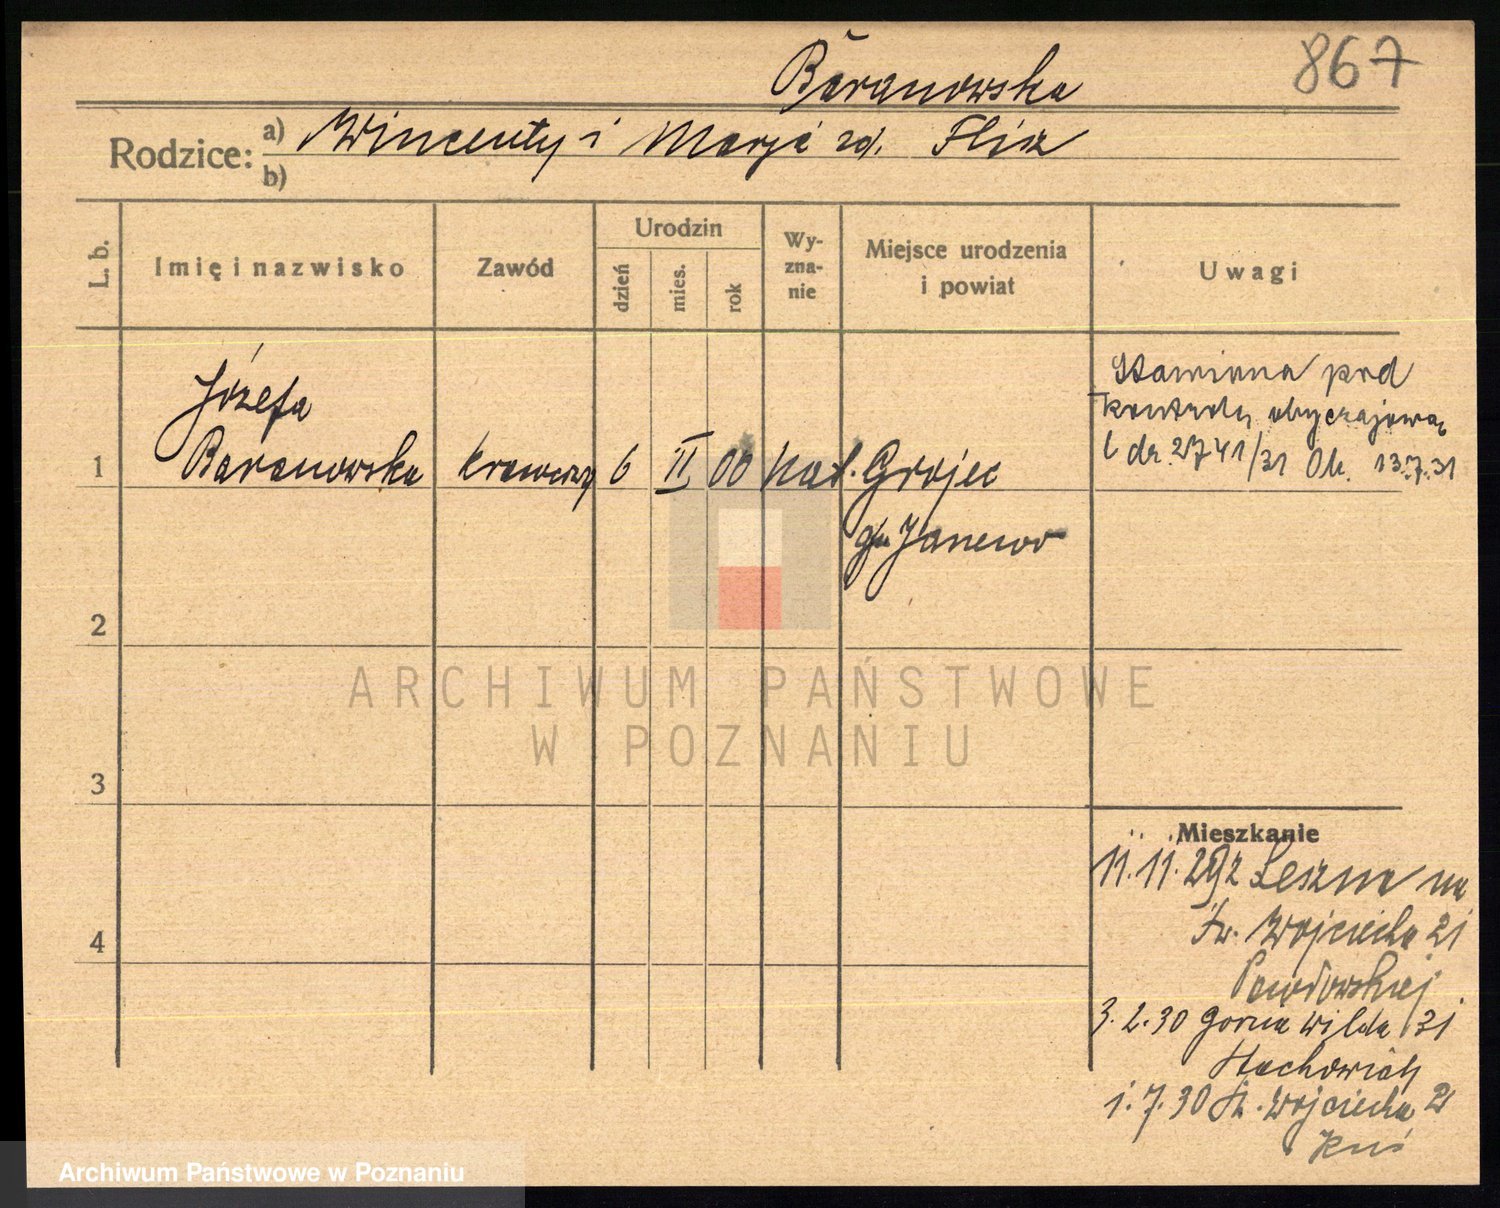 Baranowska
867
Rodzice: a) Wincenty i Marja zd. Flis
b)
L. b.
Imię i nazwisko
Zawód
Urodzin
dzień
mies.
rok
Wy-
zna-
nie
Miejsce urodzenia
i powiat
Uwagi
1
Józefa
Baranowska
krawcowa
6
II
00
kat.
Grojec
Stawiona pod
kontrolę obyczajową
l. dz. 2741/31 Ob. 13.7.31
2
3
4
Mieszkanie
11.11.29 z Leszna na
Św. Wojciecha 21
3.2.30 Gorna Wilda 131
Stachowiak
1.7.30 Św. Wojciecha 2
ARCHIWUM PAŃSTWOWE
W POZNANIU
Archiwum Państwowe w Poznaniu